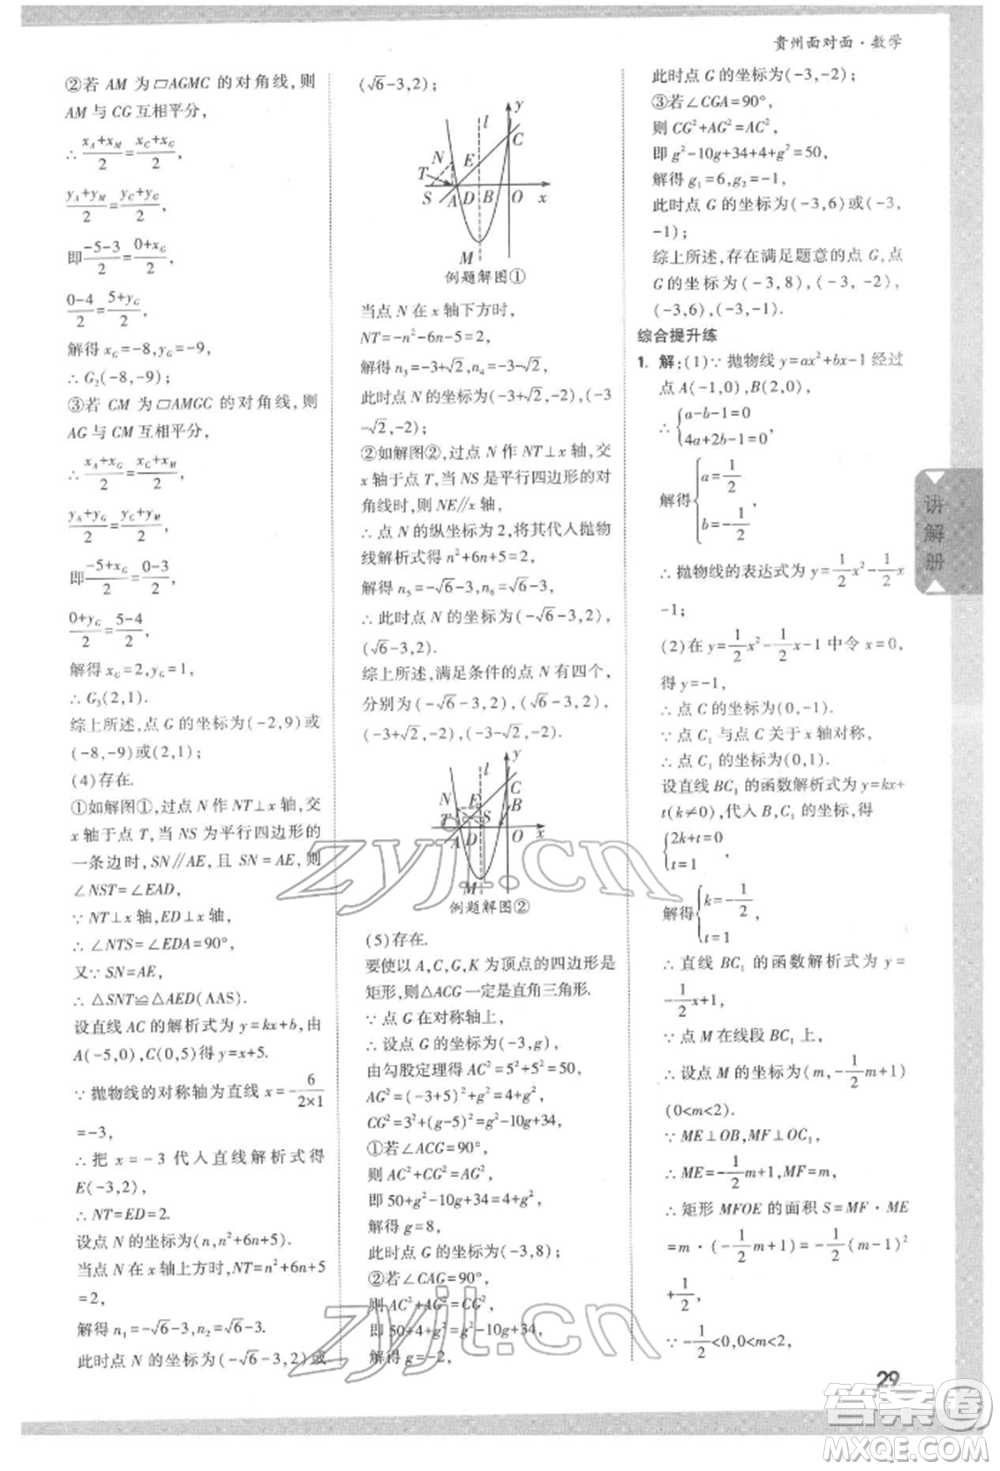 贵州面对面·数学
②若 AM 为▱AGMC 的对角线,则
AM 与 CG 互相平分,
∴ (x_A+x_M)/2=(x_C+x_G)/2,
(y_A+y_M)/2=(y_C+y_G)/2,
即(-5-3)/2=(0+x_G)/2,
(0-4)/2=(5+y_G)/2,
解得 x_G=-8,y_G=-9,
∴ G₂(-8,-9);
③若 CM 为▱AMGC 的对角线,则
AG 与 CM 互相平分,
∴ (x_A+x_G)/2=(x_C+x_M)/2,
(y_A+y_G)/2=(y_C+y_M)/2,
即(-5+x_G)/2=(0-3)/2,
(0+y_G)/2=(5-4)/2,
解得 x_G=2,y_G=1,
∴ G₃(2,1).
综上所述,点 G 的坐标为(-2,9)或
(-8,-9)或(2,1);
(4)存在.
①如解图①,过点 N 作 NT⊥x 轴,交
x 轴于点 T,当 SN 为平行四边形的
一条边时,SN∥AE,SN=AE,
∴ ∠NST=∠EAD,
∵ NT⊥x 轴,ED⊥x 轴,
∴ ∠NTS=∠EDA=90°,
又∵ SN=AE,
∴ △SNT≌△AED(AAS).
设直线 AC 的解析式为 y=kx+b,由
A(-5,0),C(0,5)得 y=x+5.
∵ 抛物线的对称轴为直线 x=-6/(2×1)
=-3,
∴ 把 x=-3 代入直线解析式得
E(-3,2),
∴ NT=ED=2.
设点 N 的坐标为(n,n²+6n+5),
当点 N 在 x 轴上方时,NT=n²+6n+5
=2,
解得 n₁=-√6-3,n₂=√6-3.
此时点 N 的坐标为(-√6-3,2)或
(√6-3,2);
y
l
C
N
E
T
S
A
D
B
O
x
M
例题解图①
当点 N 在 x 轴下方时,
NT=-n²-6n-5=2,
解得 n₃=-3+√2,n₄=-3-√2.
此时点 N 的坐标为(-3+√2,-2),(-3
-√2,-2),
②如解图②,过点 N 作 NT⊥x 轴,
交 x 轴于点 T,当 NS 是平行四边形的
对角线时,则 NE∥x 轴,
∴ 点 N 的纵坐标为 2,将其代入抛物
线解析式得 n²+6n+5=2,
解得 n₅=-√6-3,n₆=√6-3,
∴ 此时点 N 的坐标为(-√6-3,2),
(√6-3,2).
综上所述,满足条件的点 N 的坐标
分别为(-√6-3,2),(√6-3,2),
(-3+√2,-2),(-3-√2,-2).
y
l
C
N
E
T
S
A
D
B
O
x
M
例题解图②
(5)存在.
要使以 A,C,G,K 为顶点的四边形是
矩形,则△ACG 一定是直角三角形.
∵ 点 G 在对称轴上,
∴ 设点 G 的坐标为(-3,g),
由勾股定理得 AC²=5²+5²=50,
AG²=(-3+5)²+g²=4+g²,
CG²=3²+(g-5)²=g²-10g+34,
①若∠ACG=90°,
则 AC²+CG²=AG²,
即 50+g²-10g+34=4+g²,
解得 g=8,
此时点 G 的坐标为(-3,8);
②若∠CAG=90°,
则 AC²+AG²=CG²,
即 50+4+g²=g²-10g+34,
解得 g=-2,
此时点 G 的坐标为(-3,-2);
③若∠CGA=90°,
则 CG²+AG²=AC²,
即 g²-10g+34+4+g²=50,
解得 g₁=6,g₂=-1,
此时点 G 的坐标为(-3,6)或(-3,
-1);
综上所述,存在满足题意的点 G,点
G 的坐标为(-3,8),(-3,-2),
(-3,6),(-3,-1).
综合提升练
1. 解:(1)∵ 抛物线 y=ax²+bx-1 经过
点 A(-1,0),B(2,0),
∴ {a-b-1=0
4a+2b-1=0,
解得{a=1/2
b=-1/2,
∴ 抛物线的表达式为 y=1/2x²-1/2x
-1;
(2)在 y=1/2x²-1/2x-1 中令 x=0,
得 y=-1,
∴ 点 C 的坐标为(0,-1).
∵ 点 C₁ 与点 C 关于 x 轴对称,
∴ 点 C₁ 的坐标为(0,1).
设直线 BC₁ 的函数解析式为 y=kx+
t(k≠0),代入 B,C₁ 的坐标,得
{2k+t=0
t=1,
解得{k=-1/2
t=1,
∴ 直线 BC₁ 的函数解析式为 y=
-1/2x+1,
∵ 点 M 在线段 BC₁ 上,
∴ 设点 M 的坐标为(m,-1/2m+1)
(0<m<2).
∵ ME⊥OB,MF⊥OC₁,
∴ ME=-1/2m+1,MF=m,
∴ 矩形 MFOE 的面积 S=MF·ME
=m·(-1/2m+1)=-1/2(m-1)²
+1/2,
∵ -1/2<0,0<m<2,
讲解册
29
zyjl.cn
zyjl.cn
答案圈
MXQE.COM